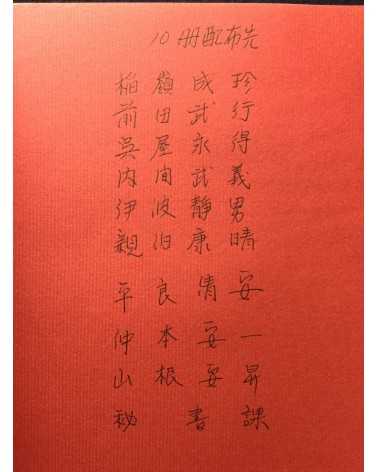 10册配布先
稲嶺成珍
前田武行
呉屋永得
内間武義
伊波静男
親泊康晴
平良清安
仲本安一
山根安昇
秘書課